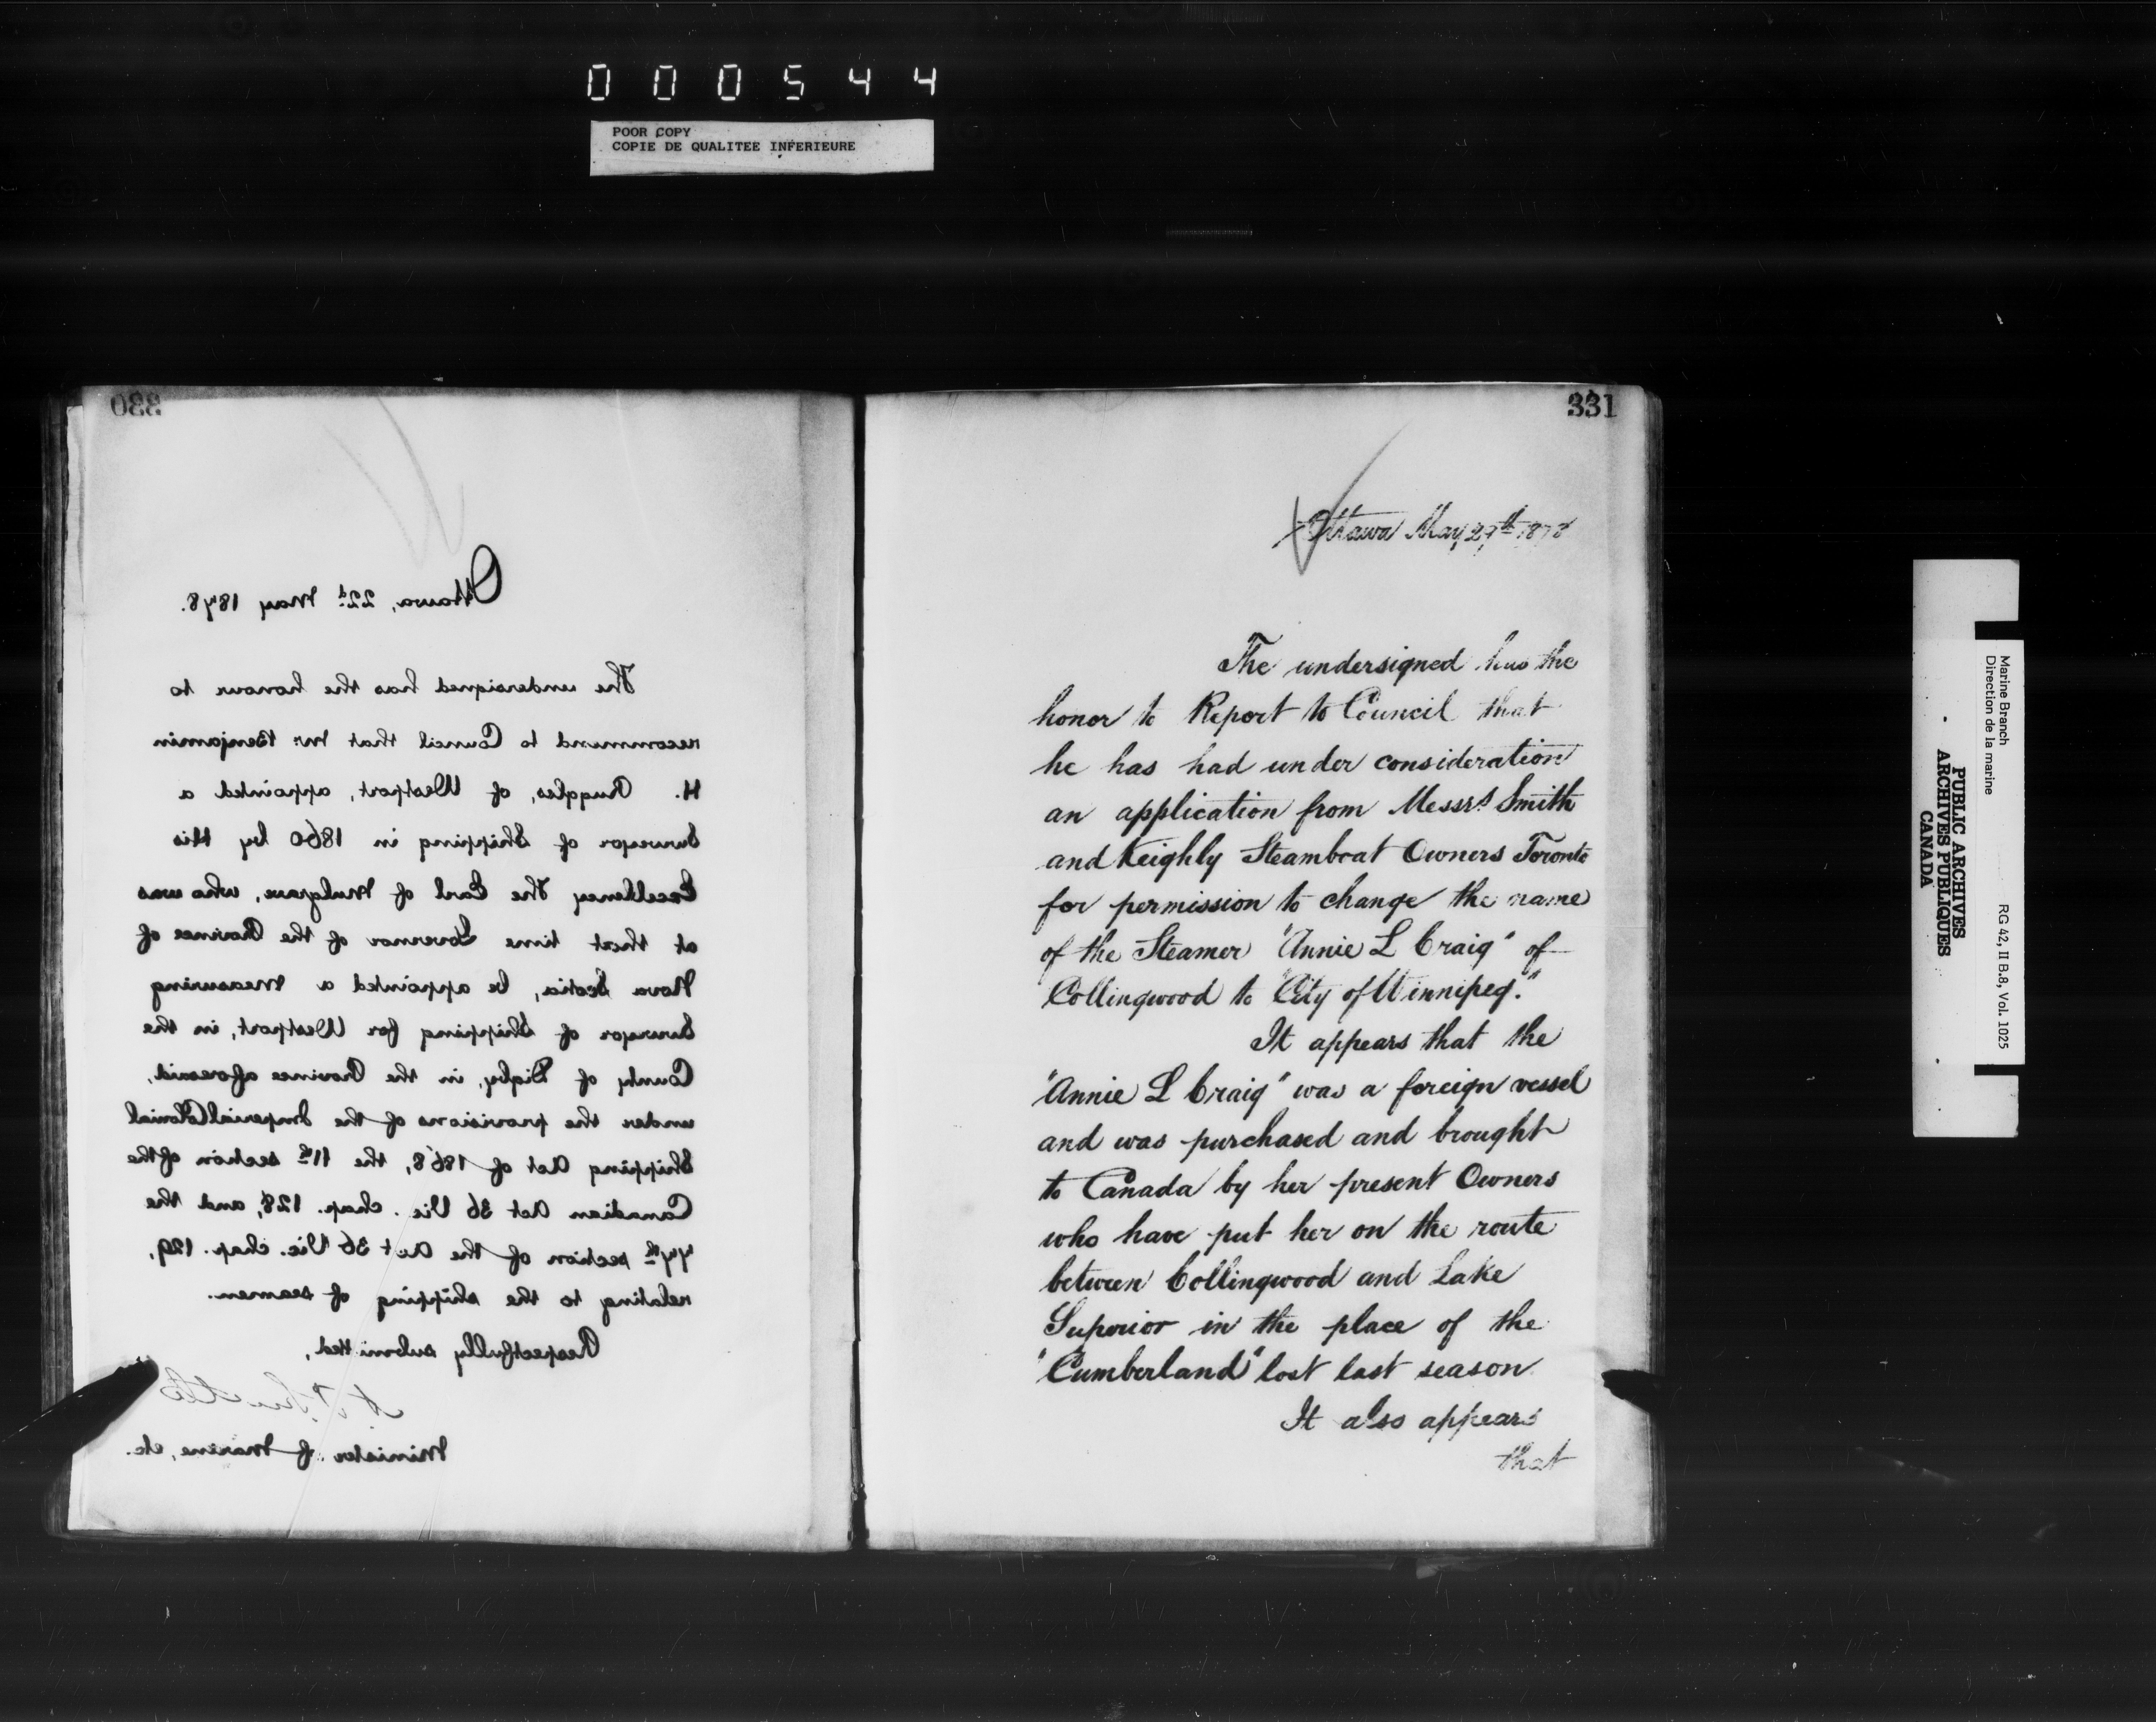 000544
POOR COPY
COPIE DE QUALITEE INFERIEURE
330
Ottawa, 22d May 1878.
The undersigned has the honour to
recommend to Council that Mr. Benjamin
H. Ruggles, of Westport, appointed a
Surveyor of Shipping in 1860 by His
Excellency The Earl of Mulgrave, who was
at that time Governor of the Province of
Nova Scotia, be appointed a Measuring
Surveyor of Shipping for Westport, in the
County of Digby, in the Province aforesaid,
under the provisions of the Imperial Colonial
Shipping Act of 1868, the 11th section of the
Canadian Act 36 Vic. chap. 128, and the
77th section of the Act 36 Vic. chap. 129,
relating to the shipping of seamen.
Respectfully submitted,
Minister of Marine, etc.
331
Ottawa May 1878
The undersigned has the
honor to Report to Council that
he has had under consideration
an application from Messrs Smith
and Keighly Steamboat Owners Toronto
for permission to change the name
of the Steamer "Annie L Craig" of
Collingwood to "City of Winnipeg."
It appears that the
"Annie L Craig" was a foreign vessel
and was purchased and brought
to Canada by her present Owners
who have put her on the route
between Collingwood and Lake
Superior in the place of the
"Cumberland" lost last season
It also appears
that
Marine Branch
Direction de la marine
RG 42, II B.8, Vol. 1025
PUBLIC ARCHIVES
ARCHIVES PUBLIQUES
CANADA